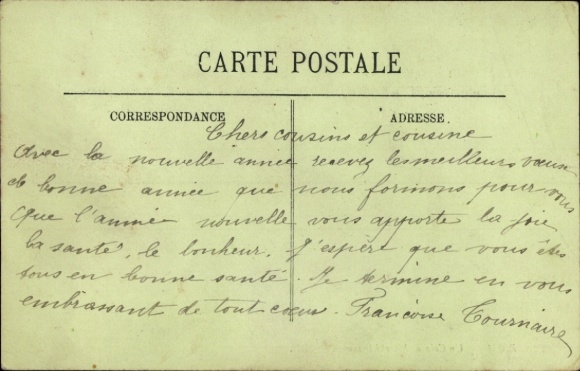 CARTE POSTALE
CORRESPONDANCE
ADRESSE.
Chers cousins et cousine
Avec la nouvelle année recevez les meilleurs vœux
de bonne année que nous formons pour vous
Que l'année nouvelle vous apporte la joie
la santé, le bonheur. J'espère que vous êtes
tous en bonne santé. Je termine en vous
embrassant de tout cœur. Françoise Tournaire